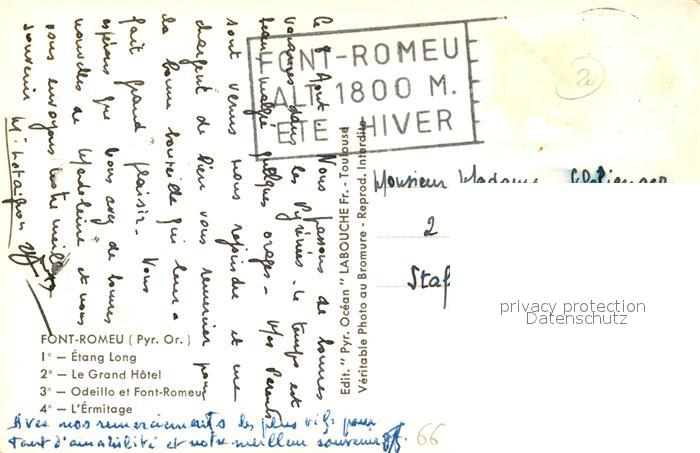 Le 8 Août. Nous passons de bonnes
vacances dans les Pyrénées. le temps est
beau malgré quelques orages. Mes Parents
sont venus nous rejoindre et me
chargent de bien vous remercier pour
la bonne bouteille qui leur a
fait grand plaisir. Nous
espérons que vous avez de bonnes
nouvelles de Madeleine et nous
vous envoyons notre meilleur
souvenir
FONT-ROMEU
ALT. 1800 M.
ETE HIVER
Edit. "Pyr. Océan" LABOUCHE Fr. - Toulouse
Véritable Photo au Bromure - Reprod. Interdite
Monsieur Madame
2
Staf
privacy protection
Datenschutz
FONT-ROMEU (Pyr. Or.)
1° — Étang Long
2° — Le Grand Hôtel
3° — Odeillo et Font-Romeu
4° — L'Ermitage
Avec nos remerciements les plus vifs pour
tant d'amabilité et notre meilleur souvenir
66